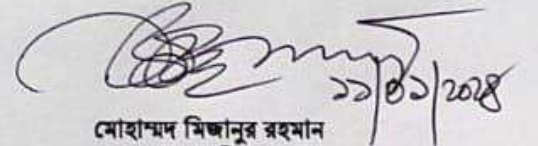 ১১/০১/২০২৪
মোহাম্মদ মিজানুর রহমান